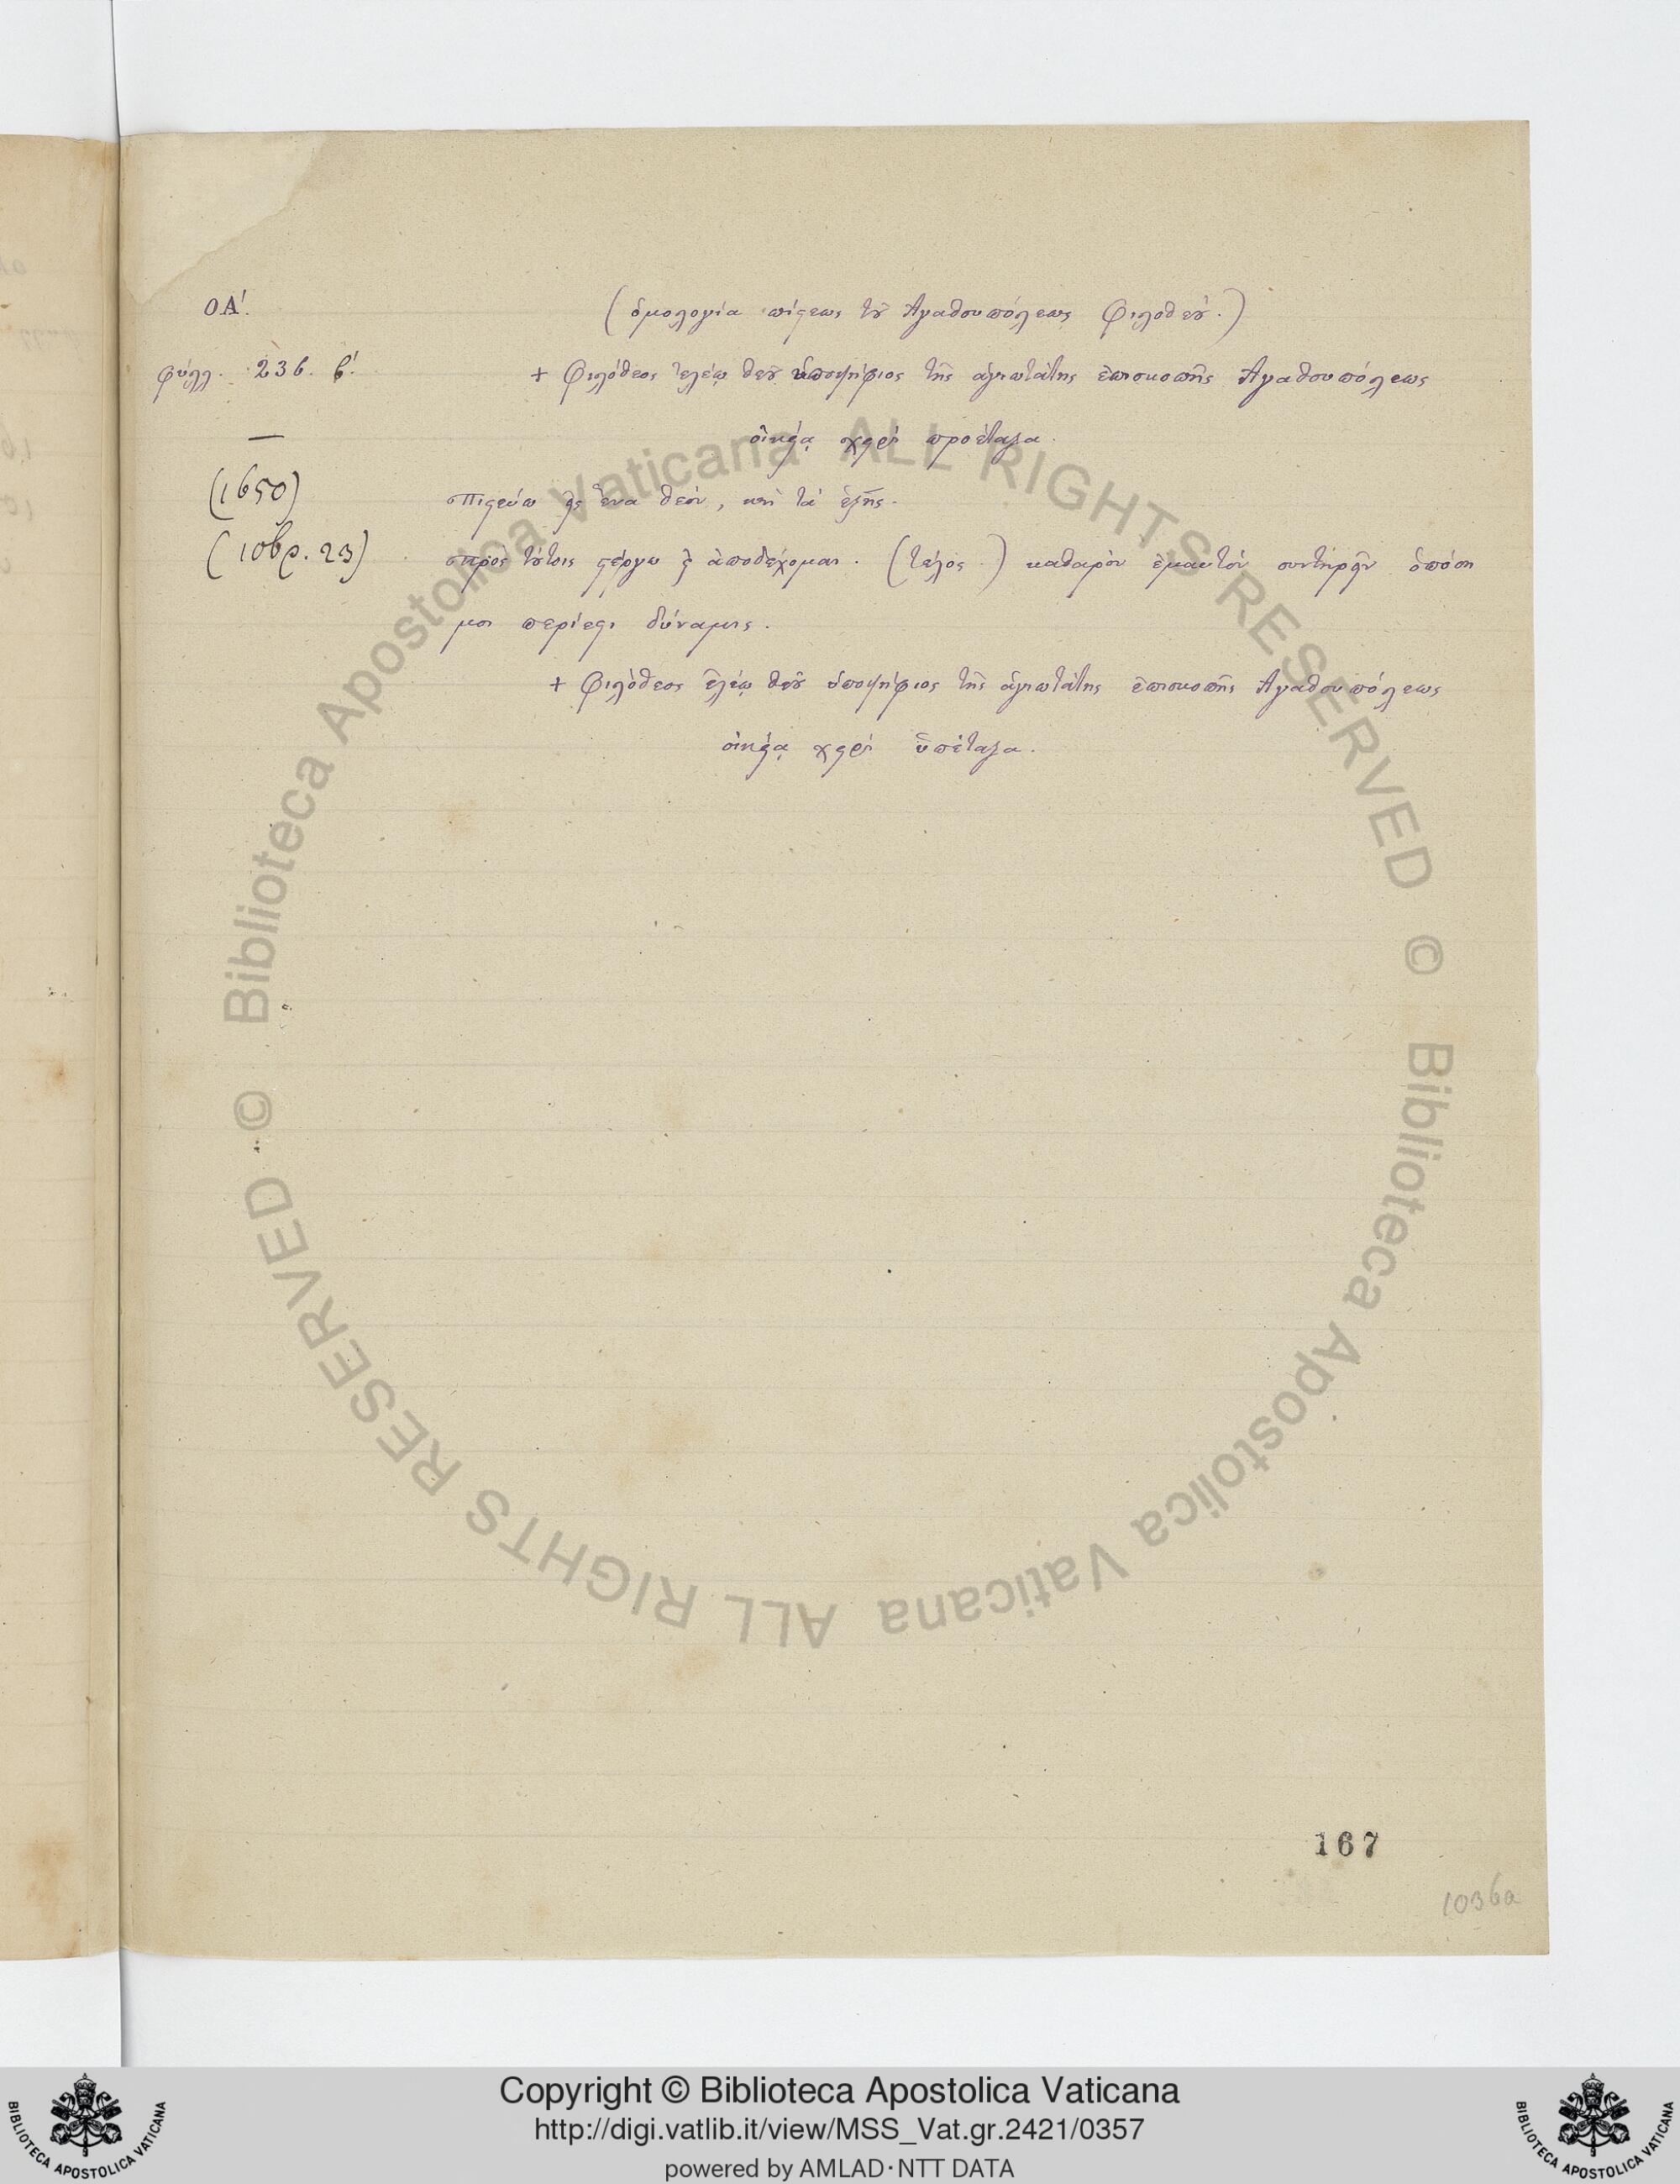 ΟΑ΄. (ὁμολογία πίστεως τοῦ Ἀγαθουπόλεως Φιλοθέου.)
φύλλ. 236. β΄. + Φιλόθεος ἐλέῳ θεοῦ ὑποψήφιος τῆς ἁγιωτάτης ἐπισκοπῆς Ἀγαθουπόλεως
— οἰκείᾳ χειρὶ προέταξα.
(1650) Πιστεύω εἰς ἕνα θεόν, καὶ τὰ ἑξῆς.
(Ἰοβρ. 23) Πρὸς τούτοις στέργω καὶ ἀποδέχομαι. (τέλος.) καθαρὸν ἐμαυτὸν συντηρεῖν ὁπόση
μοι περίεστι δύναμις.
+ Φιλόθεος ἐλέῳ θεοῦ ὑποψήφιος τῆς ἁγιωτάτης ἐπισκοπῆς Ἀγαθουπόλεως
οἰκείᾳ χειρὶ ὑπέταξα.
167
1036a
© Biblioteca Apostolica Vaticana ALL RIGHTS RESERVED
© Biblioteca Apostolica Vaticana ALL RIGHTS RESERVED
Copyright © Biblioteca Apostolica Vaticana
http://digi.vatlib.it/view/MSS_Vat.gr.2421/0357
powered by AMLAD·NTT DATA
BIBLIOTECA APOSTOLICA VATICANA
BIBLIOTECA APOSTOLICA VATICANA